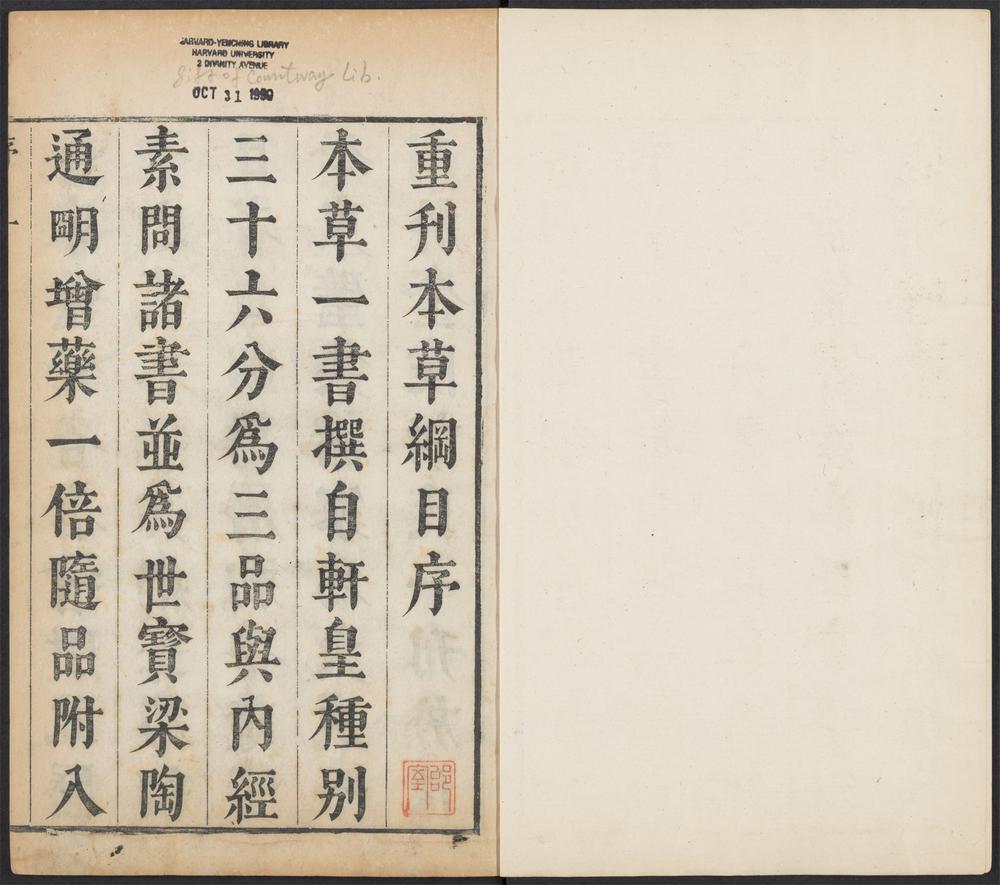 HARVARD-YENCHING LIBRARY
HARVARD UNIVERSITY
2 DIVINITY AVENUE
Gift of Countway Lib.
OCT 31 1990
重刊本草綱目序
本草一書撰自軒皇種别
三十六分爲三品與內經
素問諸書並爲世寶梁陶
通明增藥一倍隨品附入